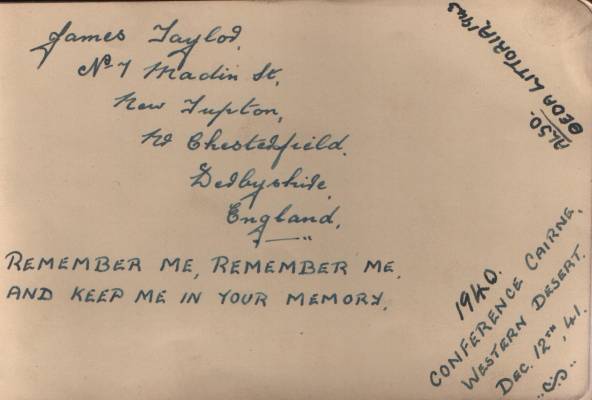 James Taylor,
No 7 Madin St,
New Tupton,
Nr Chesterfield.
Derbyshire,
England.
REMEMBER ME, REMEMBER ME,
AND KEEP ME IN YOUR MEMORY.
ALSO.
BEDA LITTORIA, 1943
1940.
CONFERENCE CAIRNE,
WESTERN DESERT.
DEC. 12TH, 41.